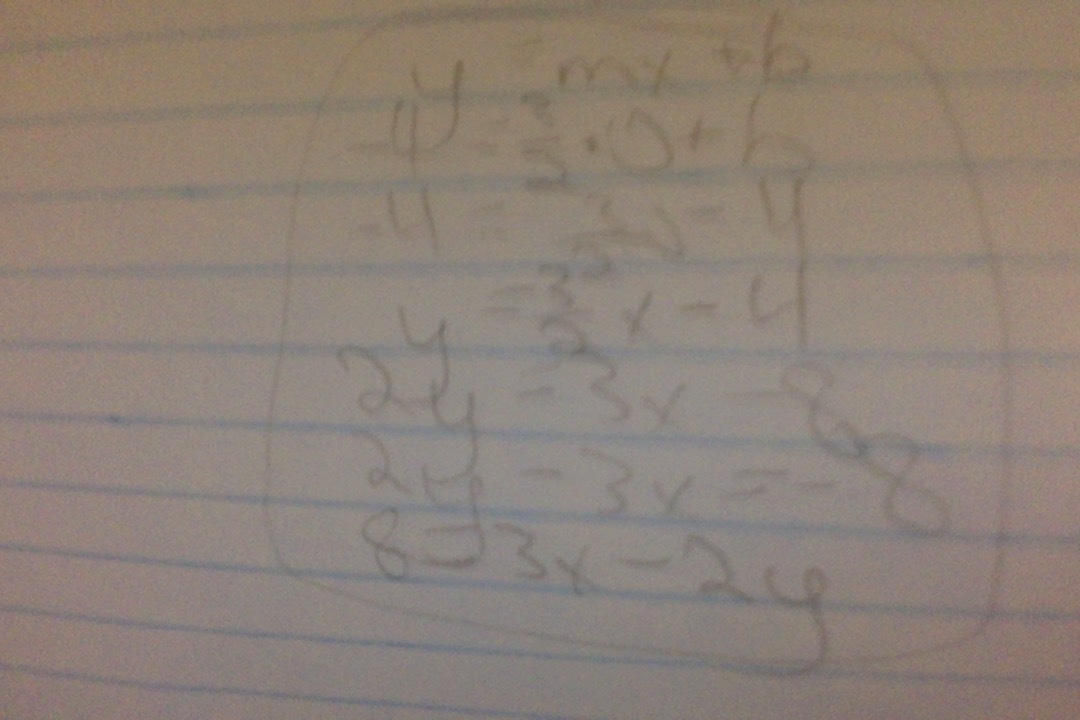 y = mx + b
-4 = 3/2 · 0 + b
-4 = - 4
y = 3/2 x - 4
2y = 3x - 8
2y - 3x = - 8
8 = 3x - 2y